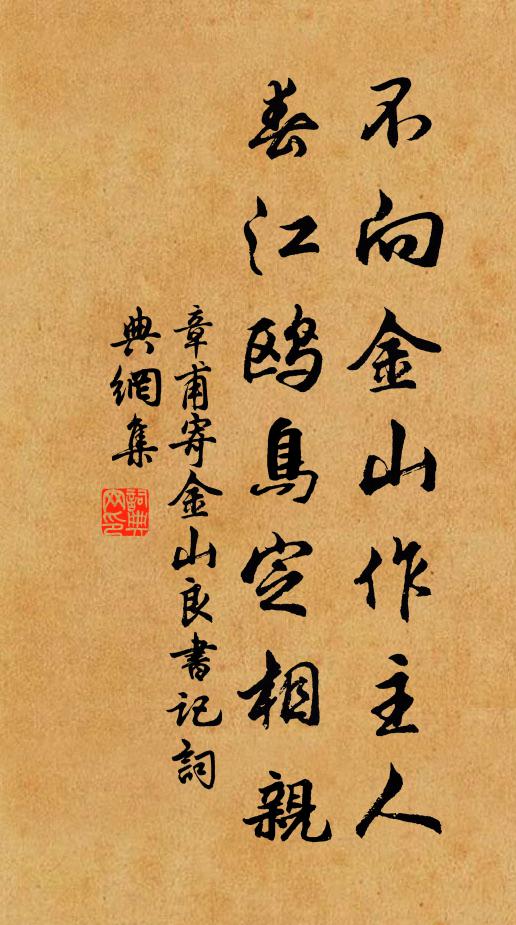 不向金山作主人
春江鸥鳥定相親
章甫寄金山良書記詞
典網集
詞典網印